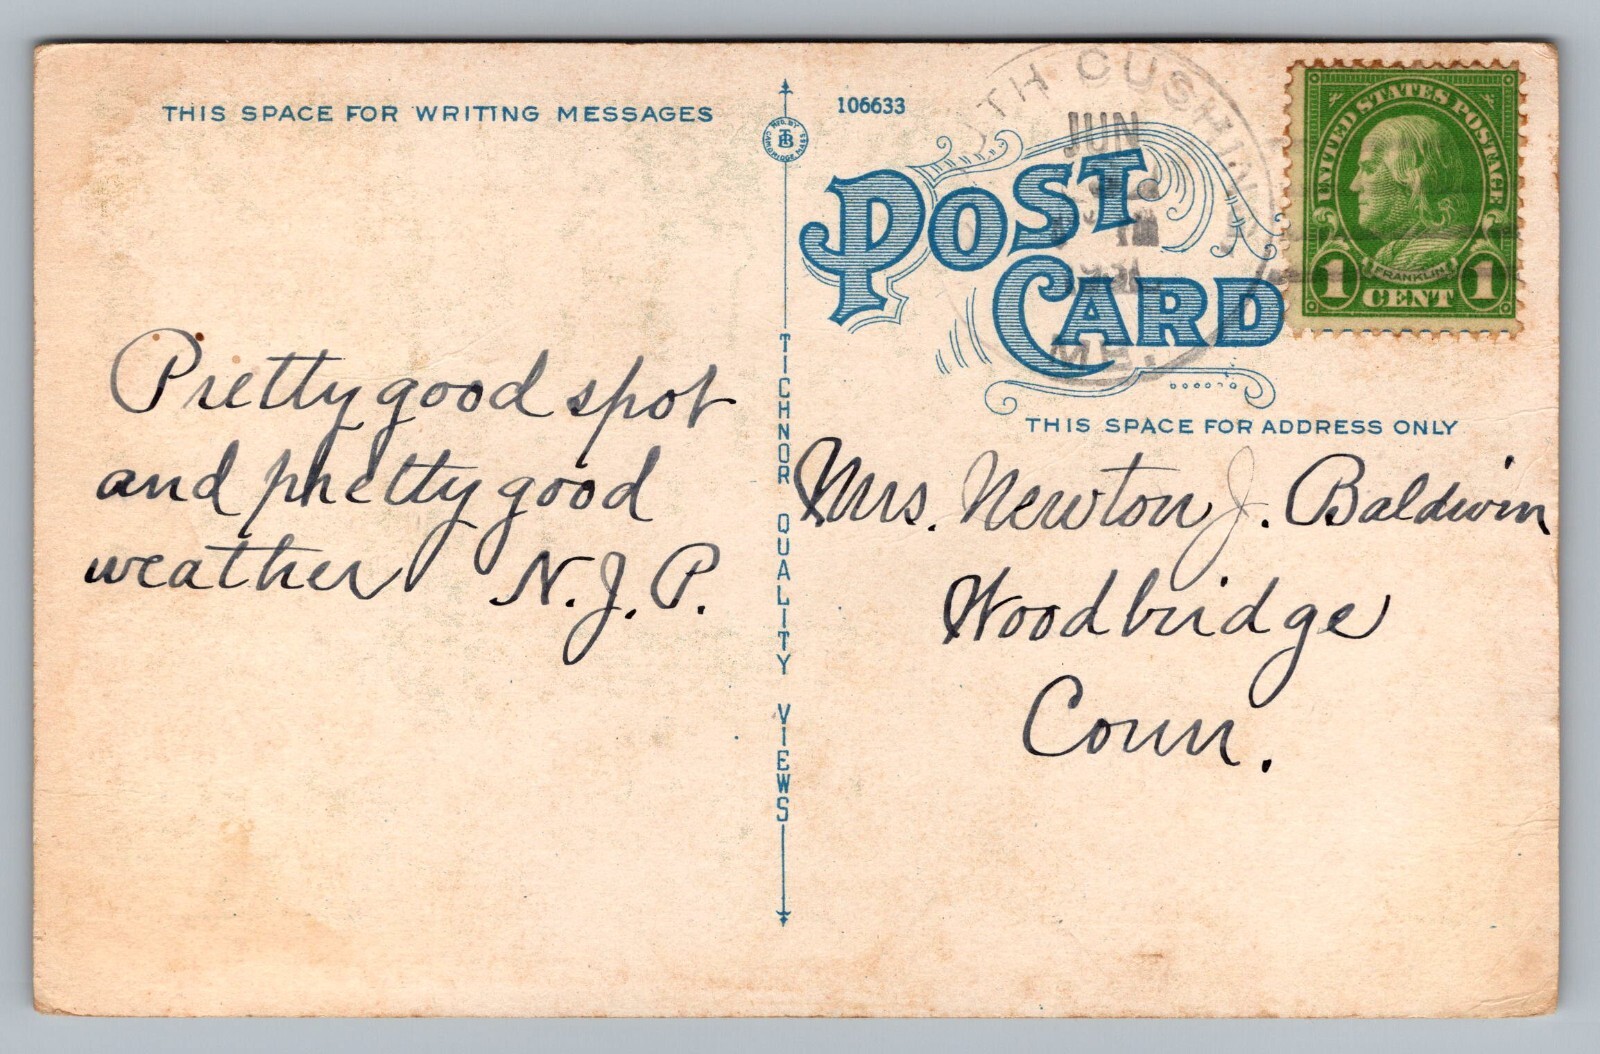 THIS SPACE FOR WRITING MESSAGES
Pretty good spot
and pretty good
weather N. J. P.
MFG. BY
TB
CAMBRIDGE, MASS
TICHNOR QUALITY VIEWS
106633
POST
CARD
TH CUSHING
JUN
ME.
UNITED STATES POSTAGE
FRANKLIN
1 CENT 1
THIS SPACE FOR ADDRESS ONLY
Mrs. Newton J. Baldwin
Woodbridge
Conn.